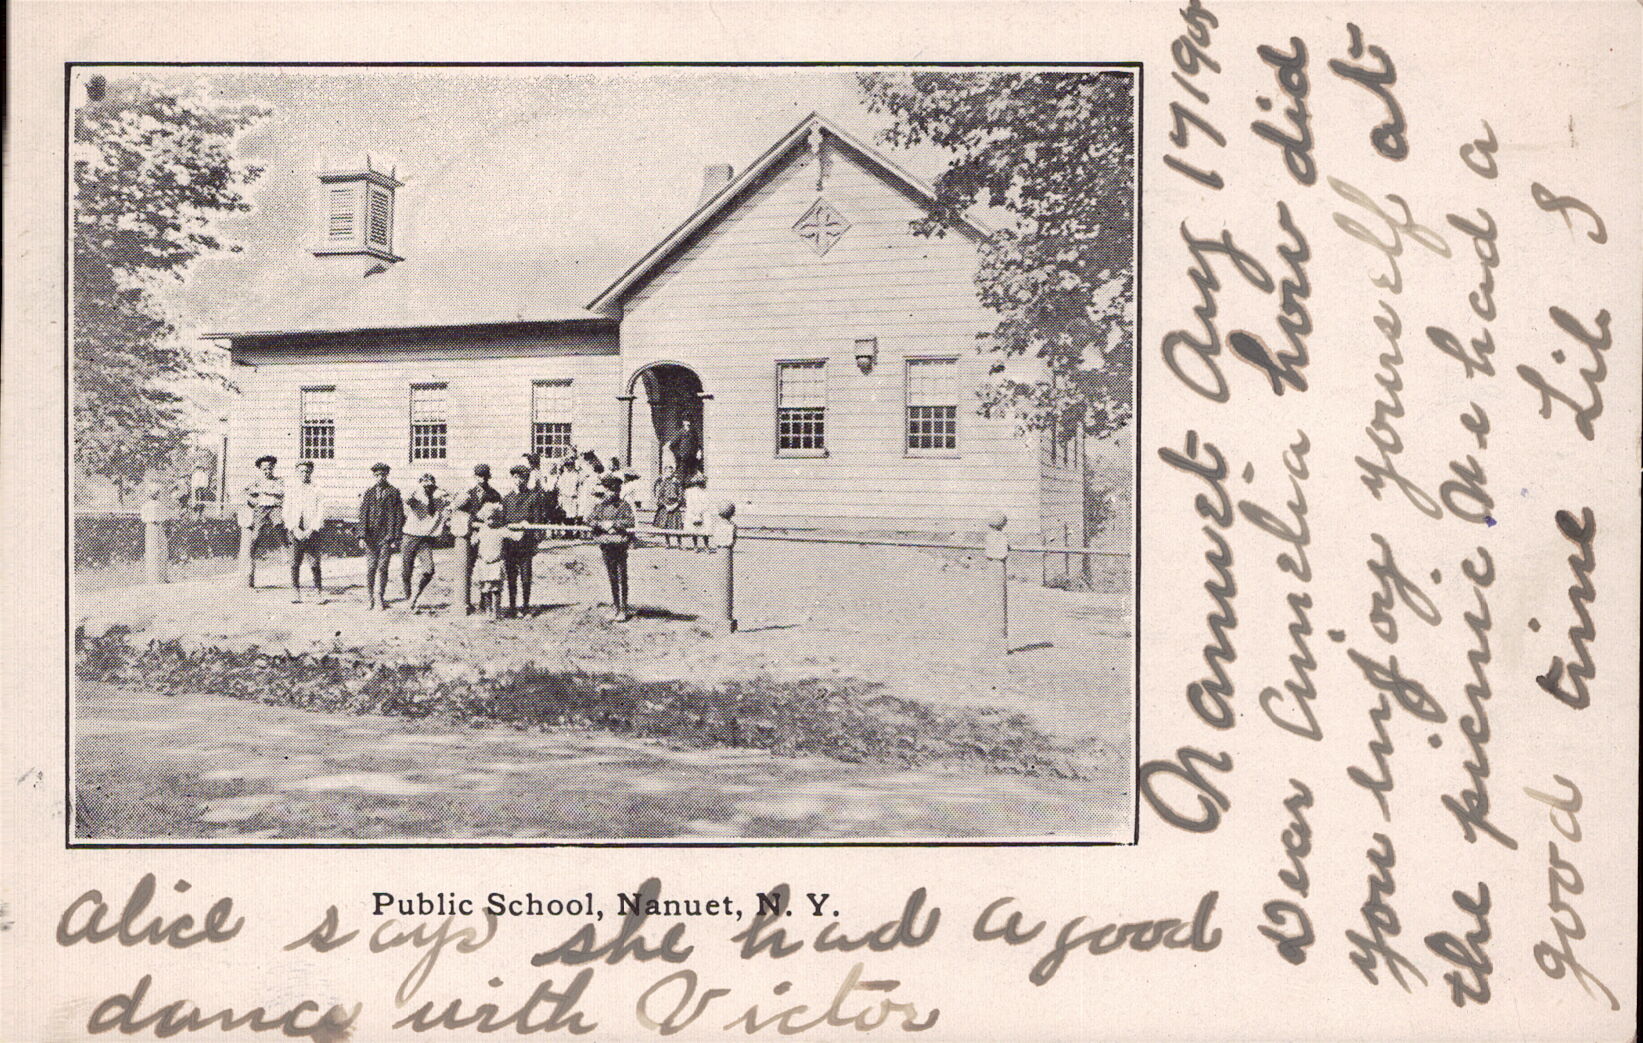 Public School, Nanuet, N. Y.
Nanuet Aug 17 190
Dear Amelia how did
you enjoy yourself at
the picnic We had a
good time Lib S
Alice says she had a good
dance with Victor